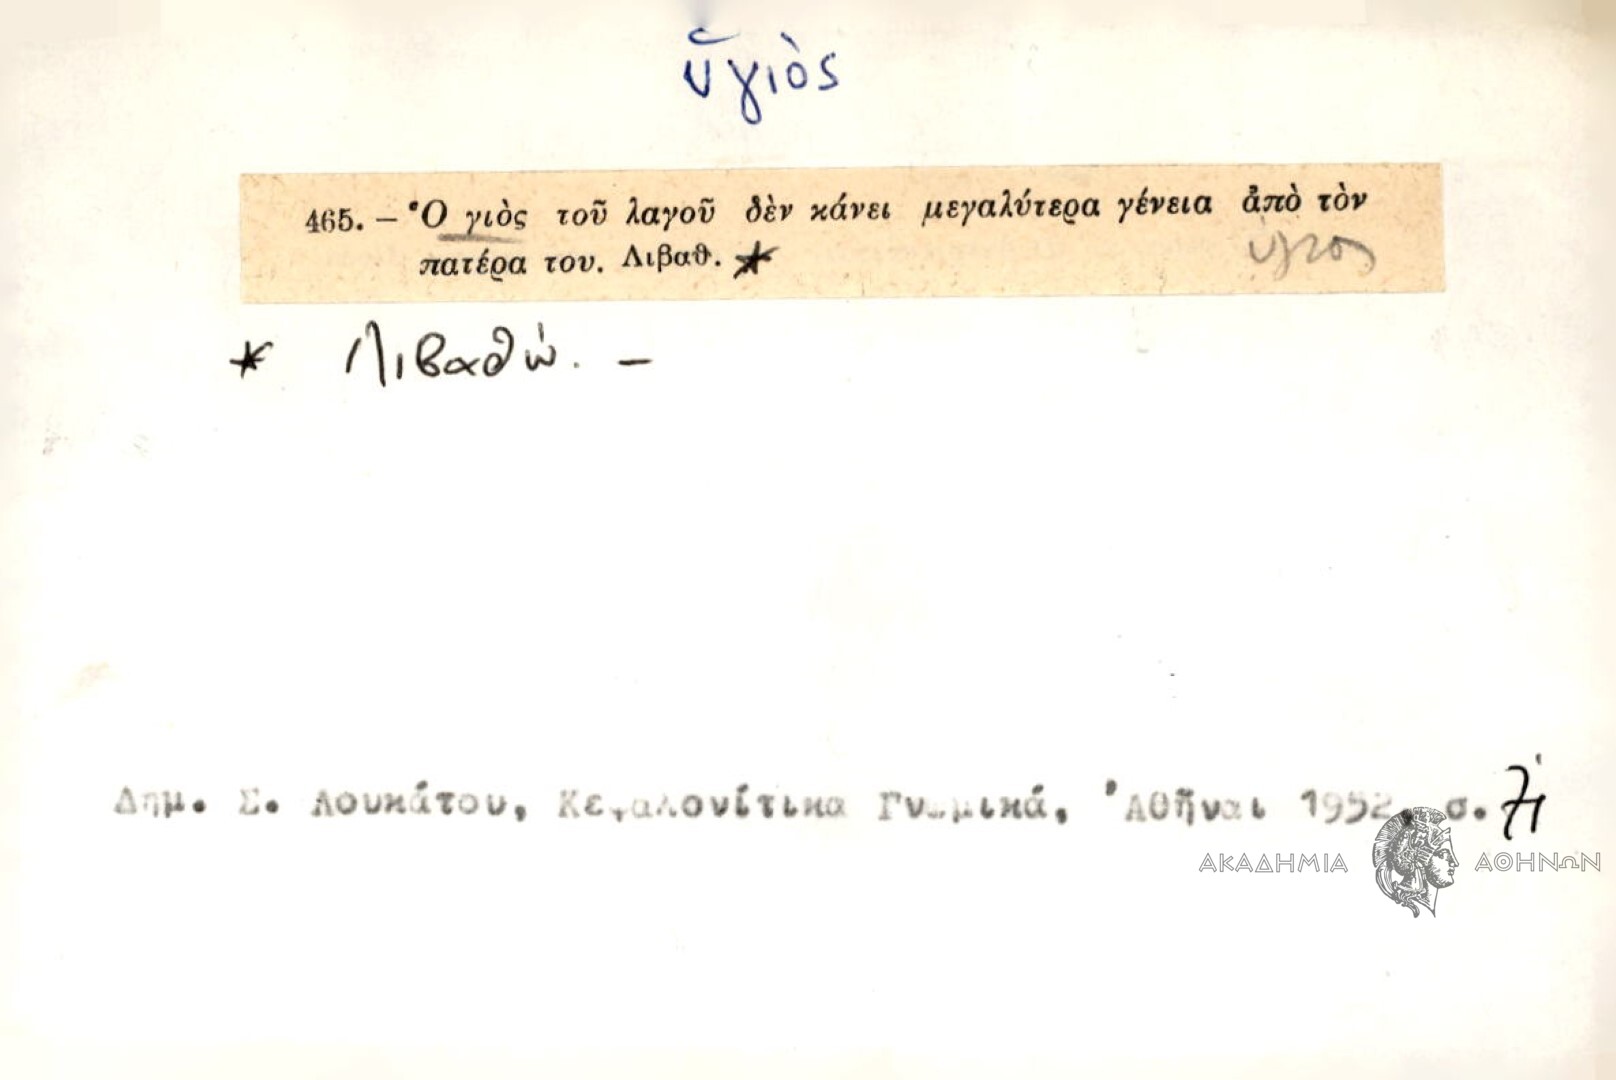 ὑγιὸς
465. — Ὁ γιὸς τοῦ λαγοῦ δὲν κάνει μεγαλύτερα γένεια ἀπὸ τὸν
πατέρα του. Λιβαθ. *
ὑγιος
* Λιβαθώ. —
Δημ. Σ. Λουκάτου, Κεφαλονίτικα Γνωμικά, Ἀθῆναι 1952, σ.
ΑΚΑΔΗΜΙΑ ΑΘΗΝΩΝ